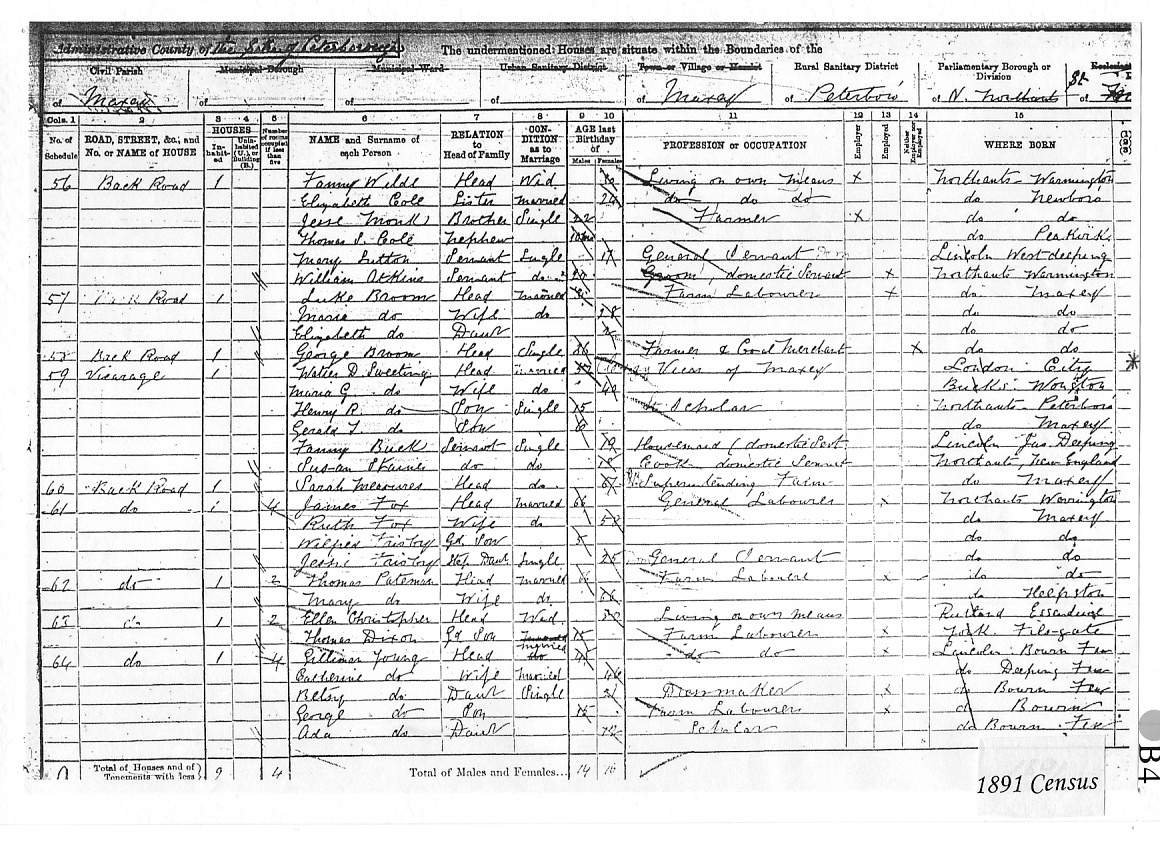 Administrative County of the Soke of Peterborough The undermentioned Houses are situate within the Boundaries of the
Civil Parish Municipal Borough Municipal Ward Urban Sanitary District Town or Village or Hamlet Rural Sanitary District Parliamentary Borough or Division
of Maxey of of of of Maxey of Peterboro' of N. Northants of
Cols. 1 2 3 4 5 6 7 8 9 10 11 12 13 14 15
No. of Schedule ROAD, STREET, &c., and No. or NAME of HOUSE HOUSES Inhabited Uninhabited (U.), or Building (B.) Number of rooms occupied if less than five NAME and Surname of each Person RELATION to Head of Family CONDITION as to Marriage AGE last Birthday of Males Females PROFESSION or OCCUPATION Employer Employed Neither Employer nor Employed WHERE BORN (1) (2) (3)
56 Back Road 1 Fanny Wilde Head Wid. Living on own means x Northants Warmington
Elizabeth Cole Sister Married 24 do do do do Newboro
Jesse Monk Brother Single 22 Farmer x do do
Thomas S. Cole Nephew do Peakirk
Mary Sutton Servant Single 17 General Servant Dom Lincoln West deeping
William Atkins Servant do Groom, domestic Servant x Northants Warmington
57 Back Road 1 Luke Broom Head Married Farm Labourer x do Maxey
Maria do Wife do 28 do do
Elizabeth do Daur do do
58 Back Road 1 George Broom Head Single 86 Farmer & Coal Merchant x do do
59 Vicarage 1 Walter D. Sweeting Head Married Vicar of Maxey London City
Maria G. do Wife do 49 Bucks
Henry R. do Son Single 15 Scholar Northants Peterboro
Gerald T. do Son do Maxey
Fanny Buck Servant Single 19 Housemaid (domestic Servt Lincoln Jas Deeping
Susan Skaines do do Cook domestic Servant Northants, New England
60 Back Road 1 Sarah Measures Head do 67 Superintending Farm do Maxey
61 do 1 4 James Fox Head Married 66 General Labourer x Northants Werrington
Ruth Fox Wife do 58 do Maxey
Wilfred Frisby Gd Son 5 do do
Jessie Frisby Step Daur Single 25 General Servant do do
62 do 1 2 Thomas Pateman Head Married Farm Labourer x do do
Mary do Wife do 66 do Helpston
63 do 1 2 Ellen Christopher Head Wid. Living on own means Rutland Essendine
Thomas Dixon Gd Son 15 Farm Labourer x York
64 do 1 4 Young Head Married do do x Lincoln Bourn Fen
Catherine do Wife Married 46 do Deeping Fen
Betsy do Daur Single 21 Dressmaker x do Bourn Fen
George do Son 15 Farm Labourer x do Bourn
Ada do Daur Scholar do Bourn Fen
Total of Houses and of Tenements with less 9 4 Total of Males and Females... 14 16
1891 Census
B4